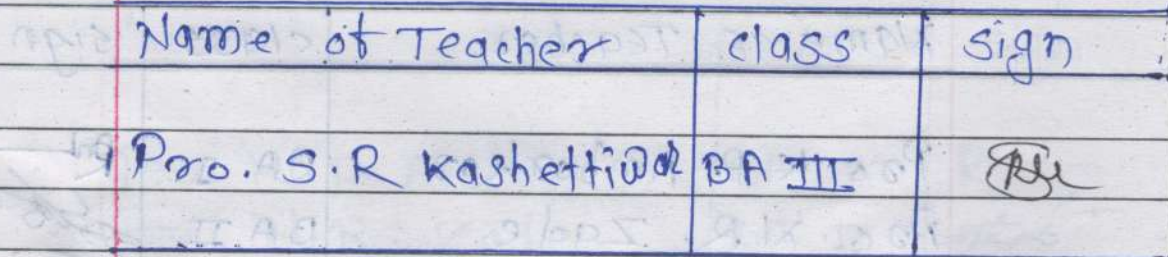 Name of Teacher class sign
Pro. S.R Kashettiwar BA III